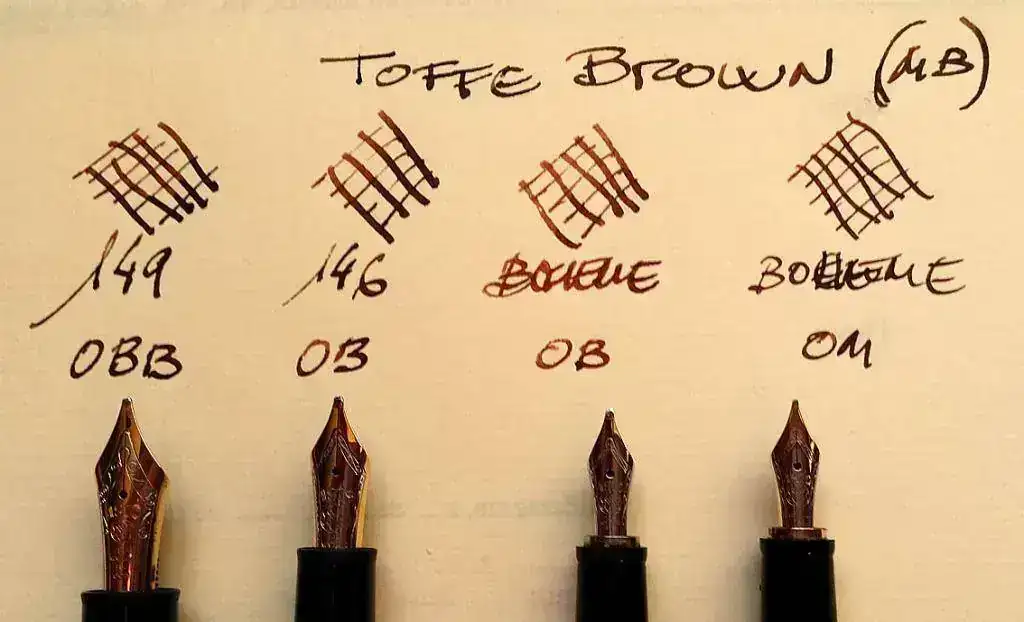 TOFFE BROWN (MB)
149 146 BOHEME BOHEME
OBB OB OB OM